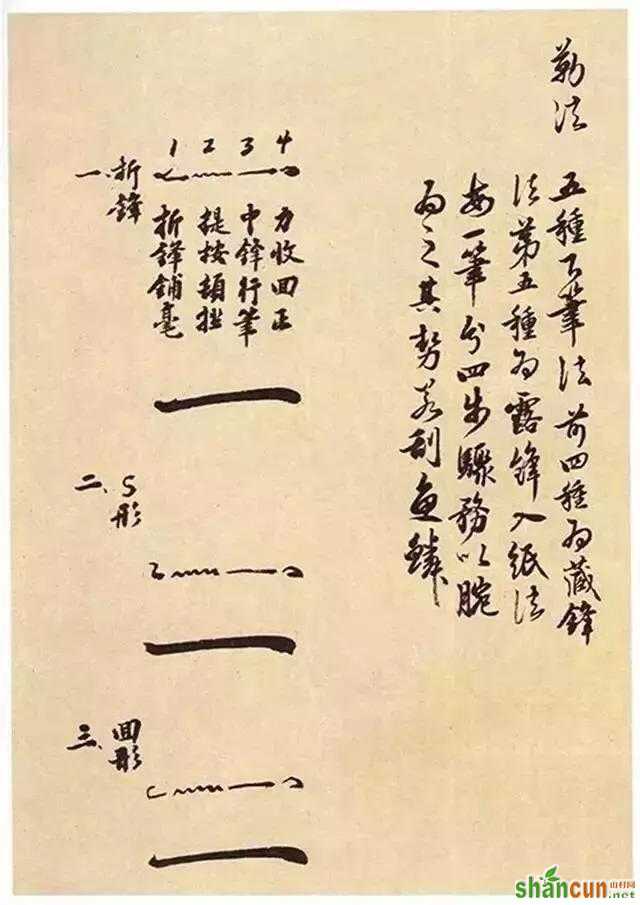 勒法
五種下筆法前四種为藏鋒
法第五種为露鋒入紙法
每一筆分四步驟務以腕
为之其勢若刮魚鱗
一、折鋒
1 2 3 4
折鋒鋪毫
提按頓挫
中鋒行筆
力收回正
二、S形
三、回形
shancun
山村网
.net